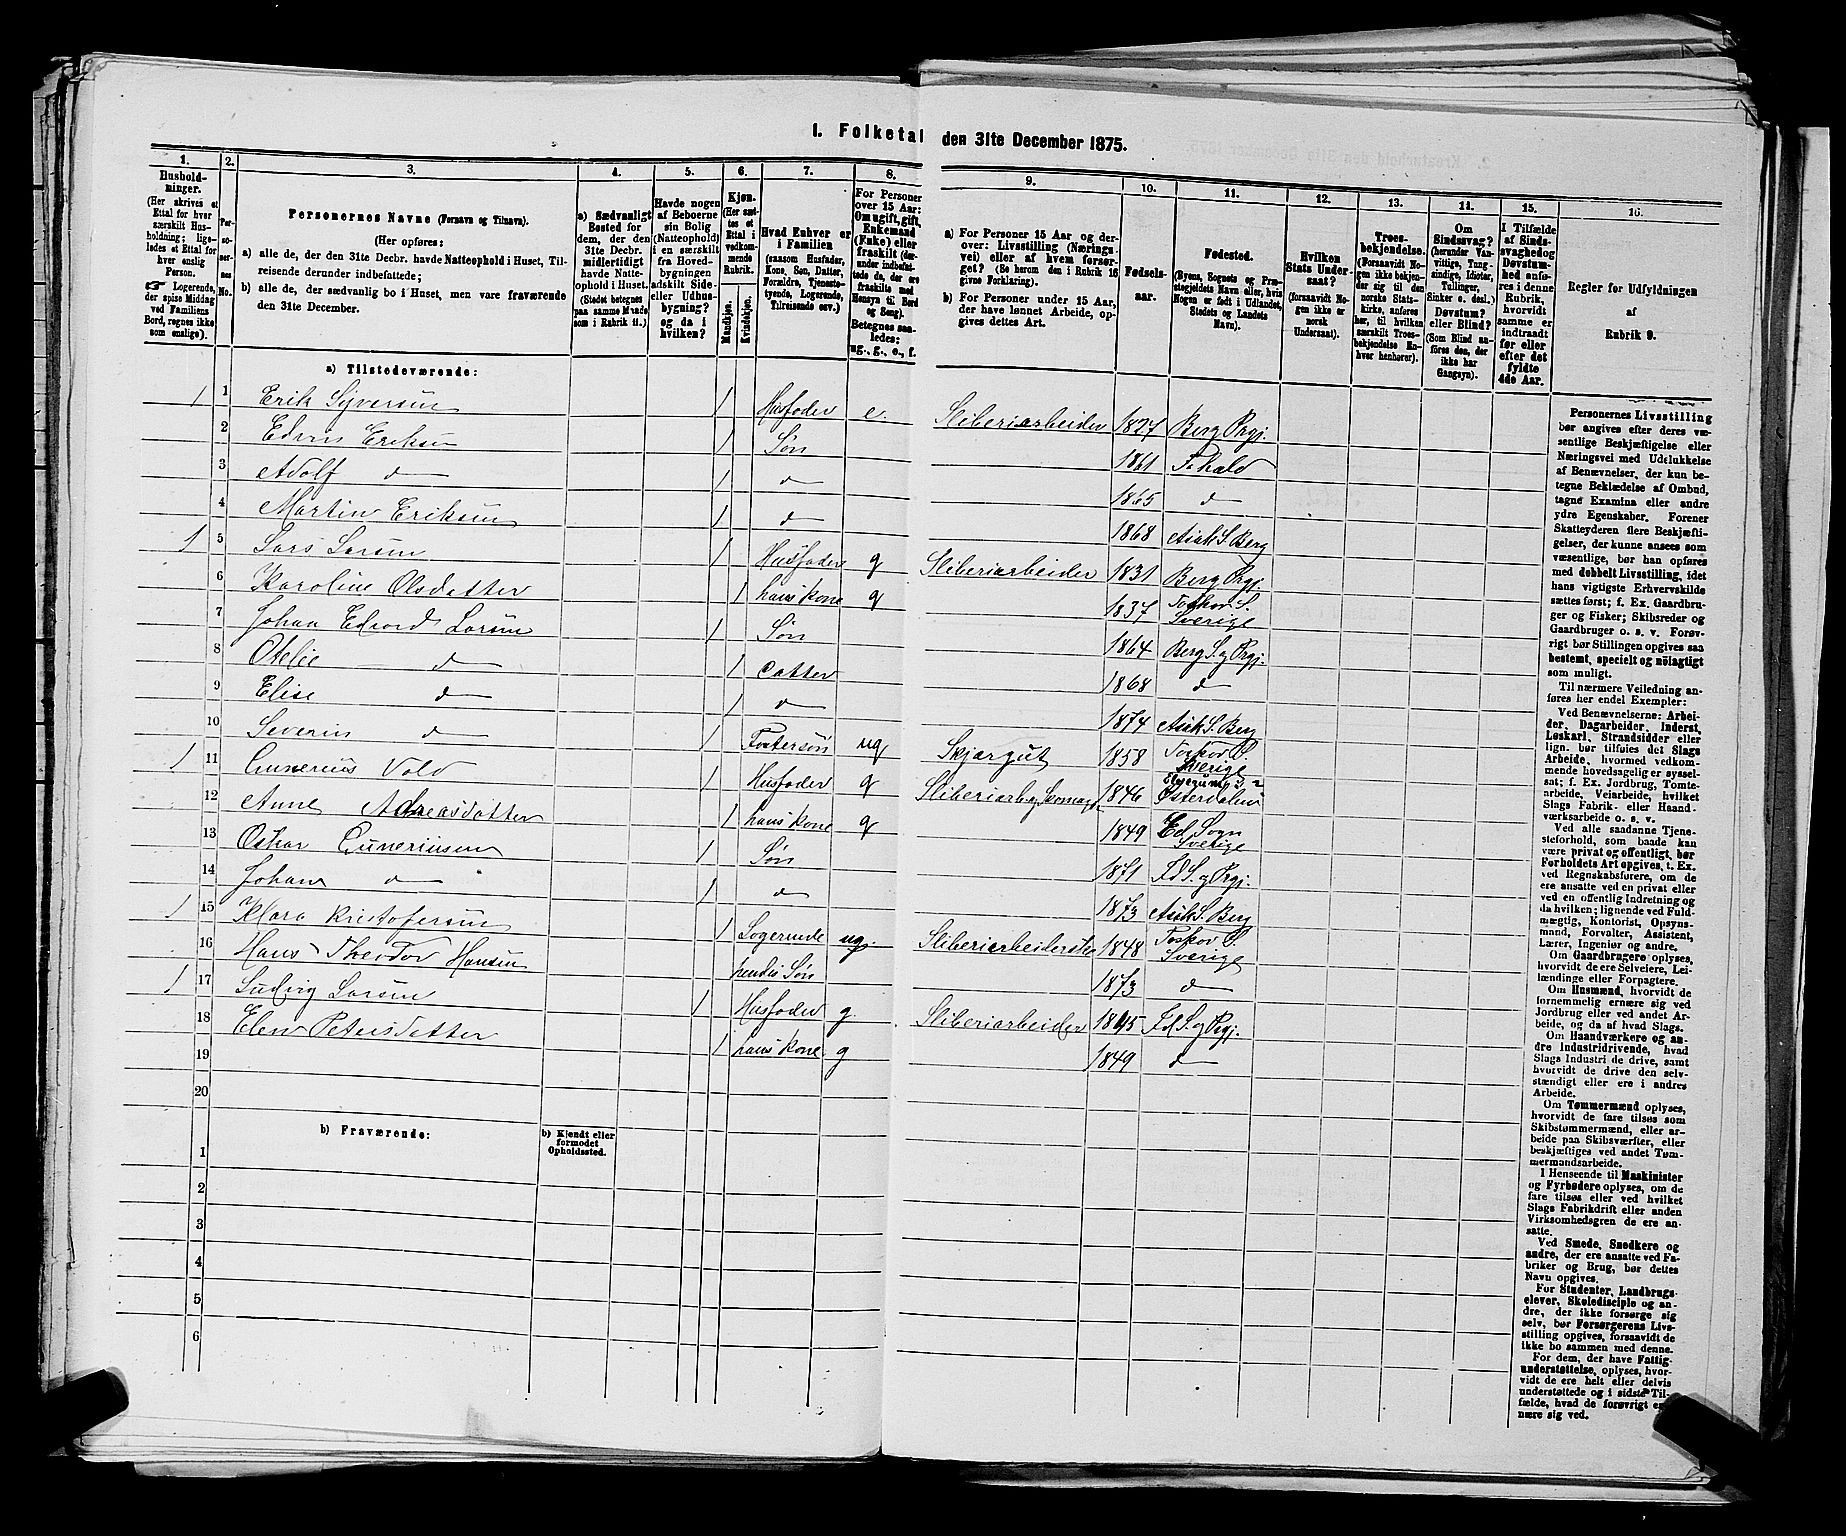 1. Folketal den 31te December 1875.
1. 2. 3. 4. 5. 6. 7. 8. 9. 10. 11. 12. 13. 14. 15. 16.
Husholdninger.
(Her skrives et
Ettal for hver
særskilt Husholdning;
ligeledes
et Ettal for
hver enslig
Person.
☞ Logerende,
der spise Middag
ved Familiens
Bord, regnes ikke
som enslige).
Personernes No.
Personernes Navne (Fornavn og Tilnavn).
(Her opføres:
a) alle de, der den 31te Decbr. havde Natteophold i Huset, Tilreisende
derunder indbefattede;
b) alle de, der sædvanlig bo i Huset, men vare fraværende
den 31te December.
a) Sædvanligt
Bosted for
dem, der den
31te Decbr.
midlertidigt
havde Natteophold
i Huset.
(Stedet betegnes
paa samme Maade
som i Rubrik 11.)
Havde nogen
af Beboerne
sin Bolig
(Natteophold)
i en særskilt
fra Hovedbygningen
adskilt Side-
eller Udhusbygning?
og da i
hvilken?
Kjøn.
(Her sættes
et
Ettal i
vedkommende
Rubrik.
Mandkjøn.
Kvindekjøn.
Hvad Enhver er
i Familien
(saasom Husfader,
Kone, Søn, Datter,
Forældre, Tjenestetyende,
Logerende,
Tilreisende osv.)
For Personer
over 15 Aar:
Om ugift, gift,
Enkemand
(Enke) eller
fraskilt (derunder
indbefattede
de, der ere
fraskilte med
Hensyn til Bord
og Seng).
Betegnes saaledes:
ug., g., e., f.
a) For Personer 15 Aar og derover:
Livsstilling (Næringsvei)
eller af hvem forsørget?
(Se herom den i Rubrik 16
givne Forklaring).
b) For Personer under 15 Aar,
der have lønnet Arbeide, opgives
dettes Art.
Fødselsaar.
Fødested.
(Byens, Sognets og Præstegjeldets
Navn eller, hvis
Nogen er født i Udlandet,
Stedets og Landets
Navn).
Hvilken
Stats Undersaat?
(forsaavidt Nogen
ikke er
norsk
Undersaat).
Troesbekjendelse.
(Forsaavidt Nogen
ikke bekjender
sig til den
norske Statskirke,
anføres
her, til hvilken
særskilt Troesbekjendelse
Enhver
henhører).
Om
Sindssvag?
(herunder Vanvittige,
Tungsindige,
Idioter,
Tullinger,
Sinker o. desl.)
Døvstum?
eller Blind?
(Som Blind anføres
den, der
ikke har
Gangsyn).
I Tilfælde
af Sindssvaghed
og
Døvstumhed
anføres
i denne
Rubrik,
hvorvidt
samme er
indtraadt
før eller
efter det
fyldte
4de Aar.
Regler for Udfyldningen
af
Rubrik 9.
a) Tilstedeværende:
1 1 Erik Syversen 1 Husfader e. Sliberiarbeider 1827 Berg Prgj.
2 Edvin Eriksen 1 Søn 1861 F.hald
3 Adolf d 1 d 1865 d
4 Martin Eriksen 1 d 1868 Asak S. Berg
1 5 Lars Larsen 1 Husfader g Sliberiarbeider 1831 Berg Prgj.
6 Karoline Olsdatter 1 hans Kone g 1837 Foskov S. Sverige
7 Johan Edvard Larsen 1 Søn 1864 Berg S. og Prgj.
8 Otelie d 1 Datter 1868 d
9 Elise d 1 d 1874 Asak S. Berg
10 Severin d 1 Fostersøn ug Skjærgut 1858 Foskov P. Sverige
1 11 Gunerius Vold 1 Husfader g Sliberiarb. 1846 Østerdalen
12 Anne Andreasdatter 1 hans Kone g 1849 Ed Sogn Sverige
13 Oskar Guneriusen 1 Søn 1871 Id S. og Prgj.
14 Johan d 1 d 1873 Asak S. Berg
1 15 Klara Kristofersen 1 Logerende ug. Sliberiarbeiderske 1848 Foskov P. Sverige
16 Hans Theodor Hansen hendes Søn 1873 d
1 17 Ludvig Larsen 1 Husfader g. Sliberiarbeider 1845 Id S. og Prgj.
18 Elen Petersdatter 1 hans Kone g 1849 d
19
20
b) Fraværende:
b) Kjendt eller
formodet
Opholdssted.
1
2
3
4
5
6
Personernes Livsstilling
bør angives efter deres væsentlige
Beskjæftigelse eller
Næringsvei med Udelukkelse
af Benævnelser, der kun betegne
Beklædelse af Ombud,
tagne Examina eller andre
ydre Egenskaber. Forener
Skatteyderen flere Beskjæftigelser,
der kunne ansees som
væsentlige, bør han opføres
med dobbelt Livsstilling, idet
hans vigtigste Erhvervskilde
sættes først; f. Ex. Gaardbruger
og Fisker; Skibsreder og
Gaardbruger o. s. v. Forøvrigt
bør Stillingen opgives saa
bestemt, specielt og nøiagtigt
som muligt.
Til nærmere Veiledning anføres
her endel Exempler:
Ved Benævnelserne: Arbeider,
Dagarbeider, Inderst,
Løskarl, Strandsidder eller
lign. bør tilføies det Slags
Arbeide, hvormed vedkommende
hovedsagelig er sysselsat;
f. Ex. Jordbrug, Tomtearbeide,
Veiarbeide, hvilket
Slags Fabrik- eller Haandværksarbeide
o. s. v.
Ved alle saadanne Tjenesteforhold,
som baade kan
være privat og offentligt, bør
Forholdets Art opgives, t. Ex.
ved Regnskabsførere, om de
ere ansatte ved en privat eller
ved en offentlig Indretning og
da hvilken; lignende ved Fuldmægtig,
Kontorist, Opsynsmand,
Forvalter, Assistent,
Lærer, Ingeniør og andre.
Om Gaardbrugere oplyses,
hvorvidt de ere Selveiere, Leilændinge
eller Forpagtere.
Om Husmænd, hvorvidt de
fornemmelig ernære sig ved
Jordbrug eller ved andet Arbeide,
og da af hvad Slags.
Om Haandværkere og andre
Industridrivende, hvad
Slags Industri de drive, samt
hvorvidt de drive den selvstændigt
eller ere i andres
Arbeide.
Om Tømmermænd oplyses,
hvorvidt de fare tilsøs som
Skibstømmermænd, eller arbeide
paa Skibsværfter, eller
beskjæftiges ved andet Tømmermandsarbeide.
I Henseende til Maskinister
og Fyrbødere oplyses, om de
fare tilsøs eller ved hvilket
Slags Fabrikdrift eller anden
Virksomhedsgren de ere ansatte.
Ved Smede, Snedkere og
andre, der ere ansatte ved Fabriker
og Brug, bør dettes
Navn opgives.
For Studenter, Landbrugselever,
Skoledisciple og andre,
der ikke forsørge sig
selv, bør Forsørgerens Livsstilling
opgives, forsaavidt de
ikke bo sammen med denne.
For dem, der have Fattigunderstøttelse,
oplyses, hvorvidt
de ere helt eller delvis
understøttede og i sidste Tilfælde,
hvad de forøvrigt ernære
sig ved.